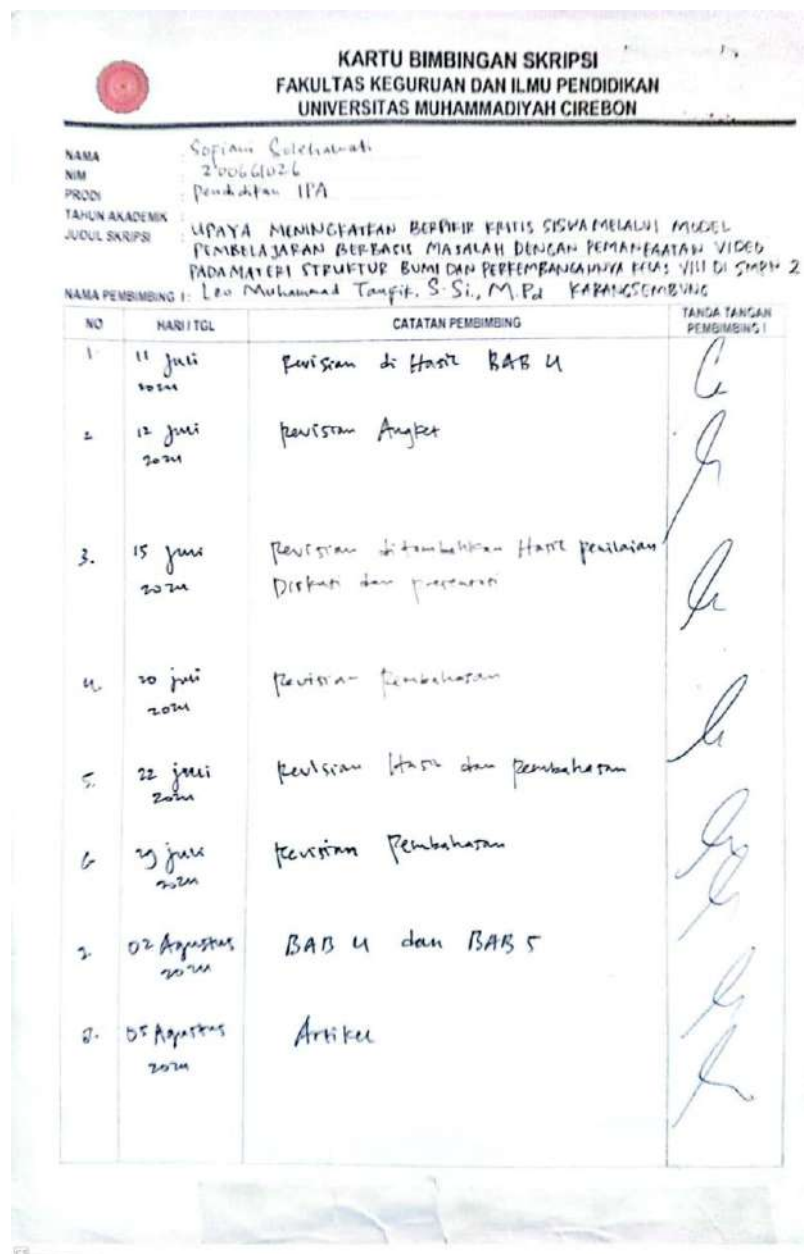 KARTU BIMBINGAN SKRIPSI
FAKULTAS KEGURUAN DAN ILMU PENDIDIKAN
UNIVERSITAS MUHAMMADIYAH CIREBON
NAMA : Sopiani Solehawati
NIM : 200661026
PRODI : Pendidikan IPA
TAHUN AKADEMIK :
JUDUL SKRIPSI : UPAYA MENINGKATKAN BERPIKIR KRITIS SISWA MELALUI MODEL
PEMBELAJARAN BERBASIS MASALAH DENGAN PEMANFAATAN VIDEO
PADA MATERI STRUKTUR BUMI DAN PERKEMBANGANNYA KELAS VIII DI SMPN 2
KARANGSEMBUNG
NAMA PEMBIMBING I : Leo Muhammad Taufik, S.Si., M.Pd
NO HARI / TGL CATATAN PEMBIMBING TANDA TANGAN PEMBIMBING I
1. 11 Juli 2024 Revisian di Hasil BAB 4
2 12 Juli 2024 Revisian Angket
3. 15 Juli 2024 Revisian ditambahkan Hasil penilaian
Diskusi dan presentasi
4. 20 Juli 2024 Revisian Pembahasan
5. 22 Juli 2024 Revisian Hasil dan Pembahasan
6 29 Juli 2024 Revisian Pembahasan
7. 02 Agustus 2024 BAB 4 dan BAB 5
8. 05 Agustus 2024 Artikel